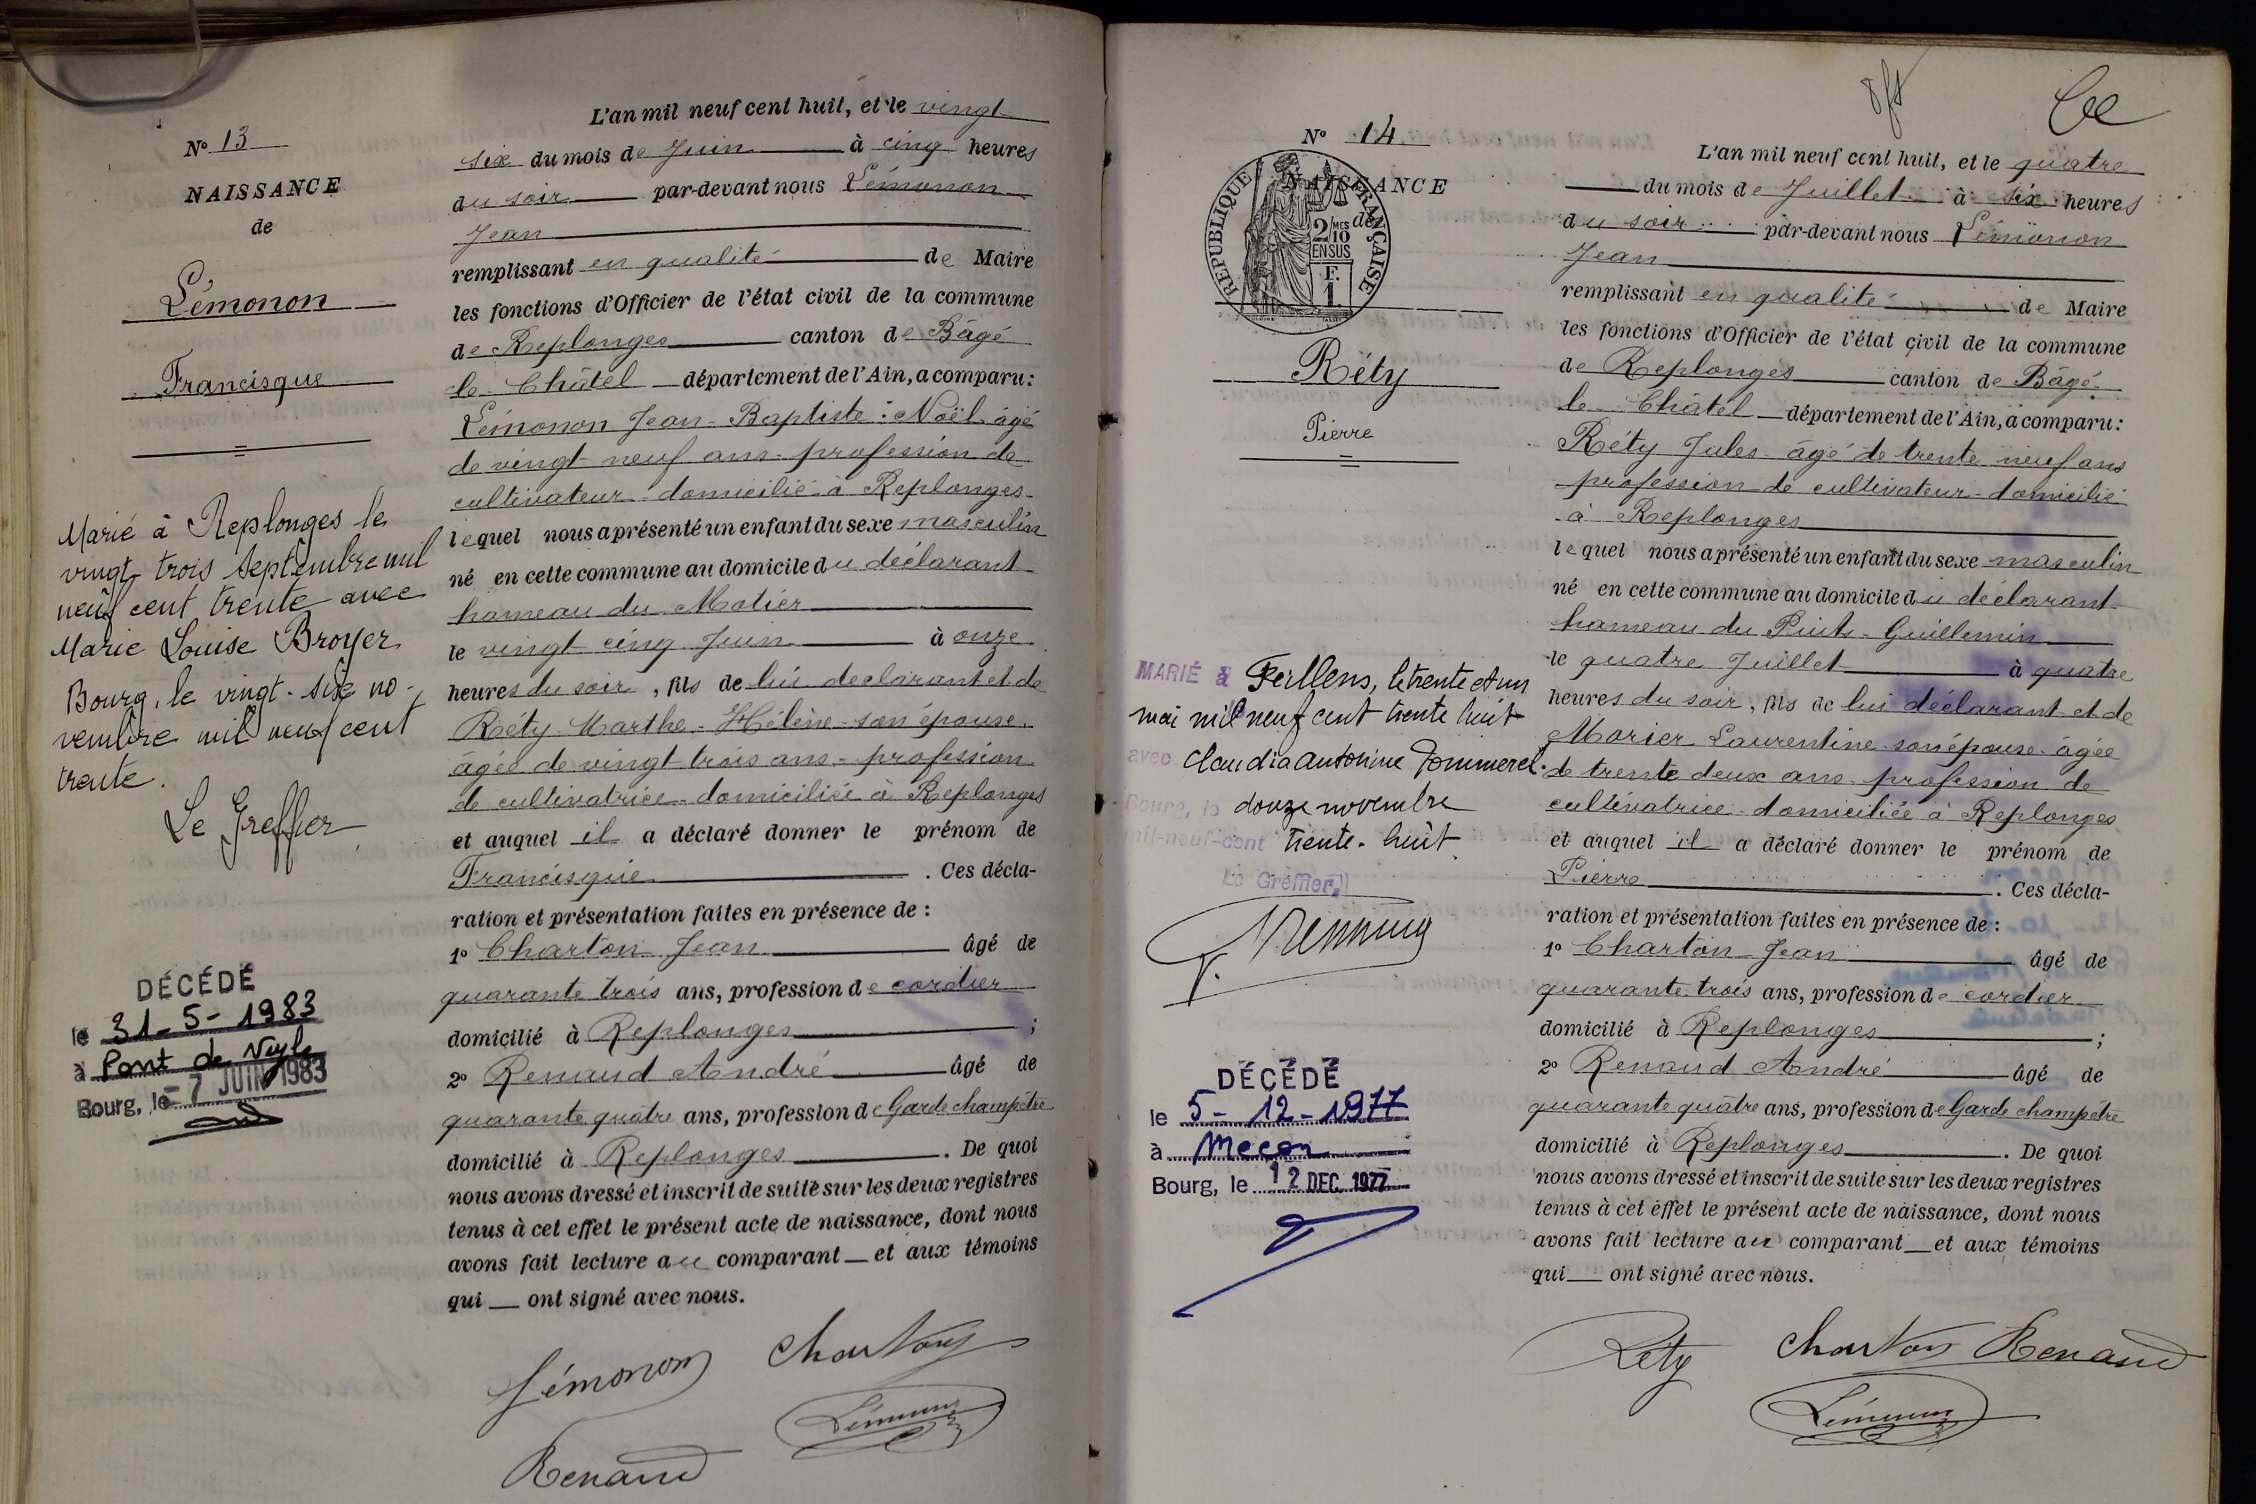 N° 13
NAISSANCE
de
Lémonon
Francisque
Marié à Replonges le
vingt trois septembre mil
neuf cent trente avec
Marie Louise Broyer
Bourg, le vingt-six no-
vembre mil neuf cent
trente.
Le Greffier
DÉCÉDÉ
le 31-5-1983
à Pont de Veyle
Bourg, le - 7 JUIN 1983
L'an mil neuf cent huit, et le vingt
six du mois de Juin à cinq heures
du soir par-devant nous Lémonon
Jean
remplissant en qualité de Maire
les fonctions d'Officier de l'état civil de la commune
de Replonges canton de Bâgé
le Châtel département de l'Ain, a comparu :
Lémonon Jean-Baptiste-Noël âgé
de vingt neuf ans profession de
cultivateur domicilié à Replonges
lequel nous a présenté un enfant du sexe masculin
né en cette commune au domicile du déclarant
hameau du
le vingt cinq Juin à onze
heures du soir, fils de lui déclarant et de
Réty Marthe-Hélène son épouse
âgée de vingt trois ans profession
de cultivatrice domiciliée à Replonges
et auquel il a déclaré donner le prénom de
Francisque . Ces décla-
ration et présentation faites en présence de :
1° Charton Jean âgé de
quarante trois ans, profession de cordier
domicilié à Replonges ;
2° Renaud André âgé de
quarante quatre ans, profession de Garde champêtre
domicilié à Replonges . De quoi
nous avons dressé et inscrit de suite sur les deux registres
tenus à cet effet le présent acte de naissance, dont nous
avons fait lecture au comparant et aux témoins
qui ont signé avec nous.
Lémonon Charton
Lémonon
Renaud
N° 14
NAISSANCE
de
RÉPUBLIQUE FRANÇAISE
2/10 MES
EN SUS
F.
1
Réty
Pierre
MARIÉ à Perllens, le trente et un
mai mil neuf cent trente huit
avec Claudia Antonine Pommerel.
Bourg, le douze novembre
mil-neuf-cent trente-huit
Le Greffier,
DÉCÉDÉ
le 5-12-1977
à Mecon
Bourg, le 12 DEC. 1977
L'an mil neuf cent huit, et le quatre
du mois de Juillet à six heures
du soir par-devant nous Lémonon
Jean
remplissant en qualité de Maire
les fonctions d'Officier de l'état civil de la commune
de Replonges canton de Bâgé
le Châtel département de l'Ain, a comparu :
Réty Jules âgé de trente neuf ans
profession de cultivateur domicilié
à Replonges
lequel nous a présenté un enfant du sexe masculin
né en cette commune au domicile du déclarant
hameau du Puits-Guillemin
le quatre Juillet à quatre
heures du soir, fils de lui déclarant et de
Morier Laurentine son épouse âgée
de trente deux ans profession de
cultivatrice domiciliée à Replonges
et auquel il a déclaré donner le prénom de
Pierre . Ces décla-
ration et présentation faites en présence de :
1° Charton Jean âgé de
quarante trois ans, profession de cordier
domicilié à Replonges ;
2° Renaud André âgé de
quarante quatre ans, profession de Garde champêtre
domicilié à Replonges . De quoi
nous avons dressé et inscrit de suite sur les deux registres
tenus à cet effet le présent acte de naissance, dont nous
avons fait lecture au comparant et aux témoins
qui ont signé avec nous.
Réty Charton Renaud
Lémonon